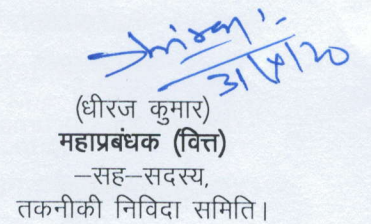 (धीरज कुमार)
महाप्रबंधक (वित्त)
–सह–सदस्य,
तकनीकी निविदा समिति।